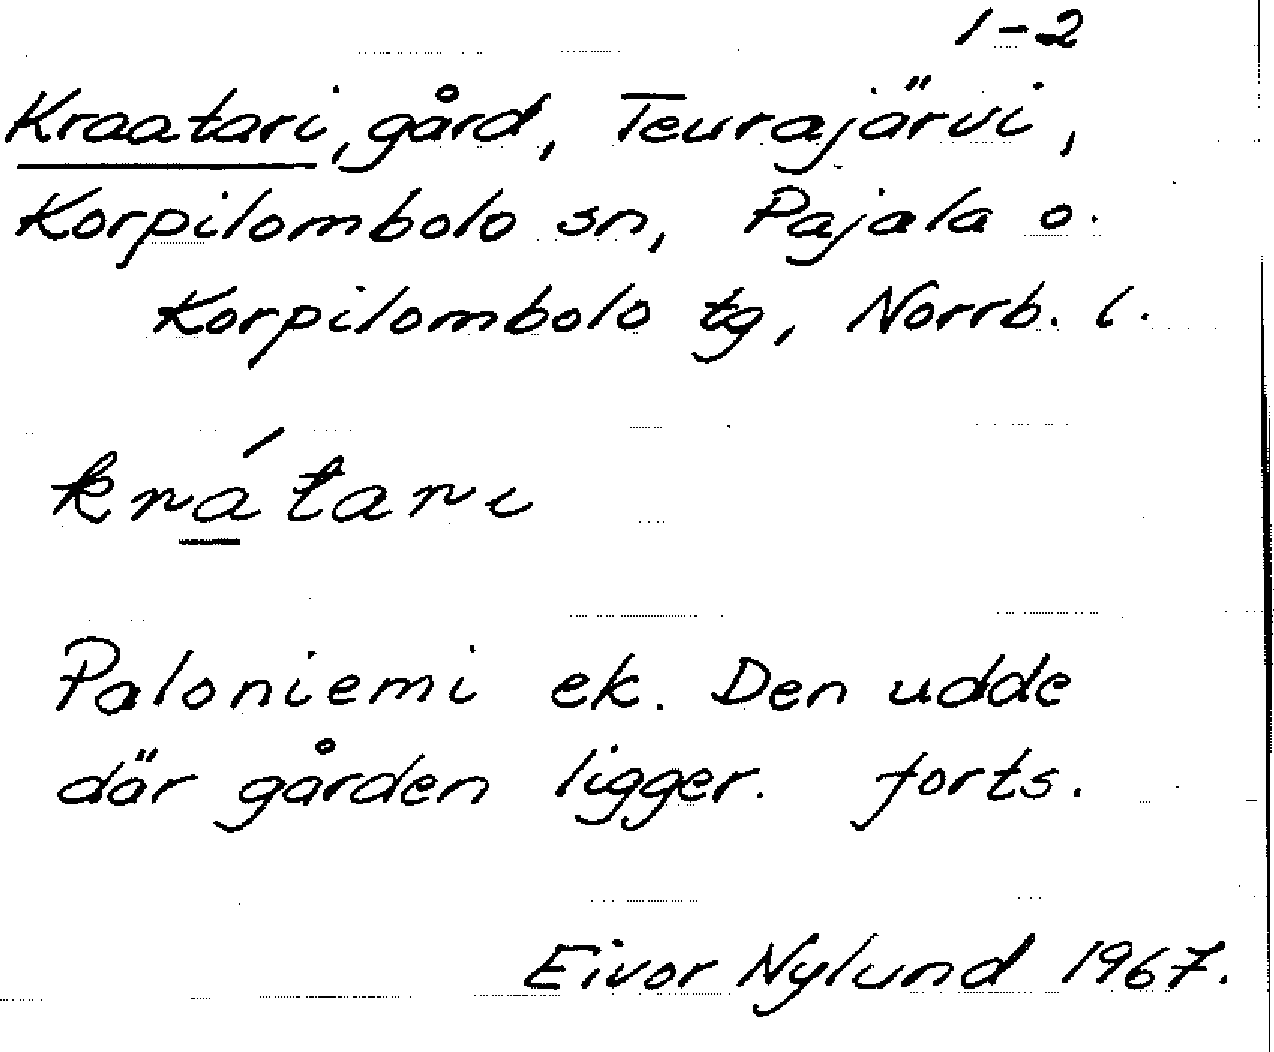 1-2
Kraatari, gård, Teurajärvi,
Korpilombolo sn, Pajala o.
Korpilombolo tg, Norrb. l.
krá̱tari
Paloniemi ek. Den udde
där gården ligger. forts.
Eivor Nylund 1967.